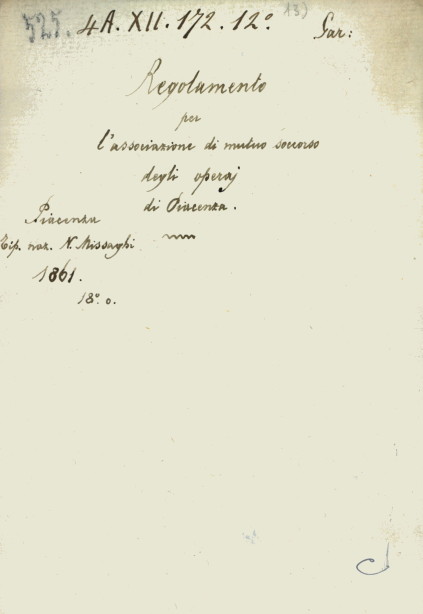 525. 4A. XII. 172. 12°. 13) Gar:
Regolamento
per
l'associazione di mutuo soccorso
degli operaj
di Piacenza.
Piacenza
Tip. naz. N. Missaghi
1861.
18°. o.